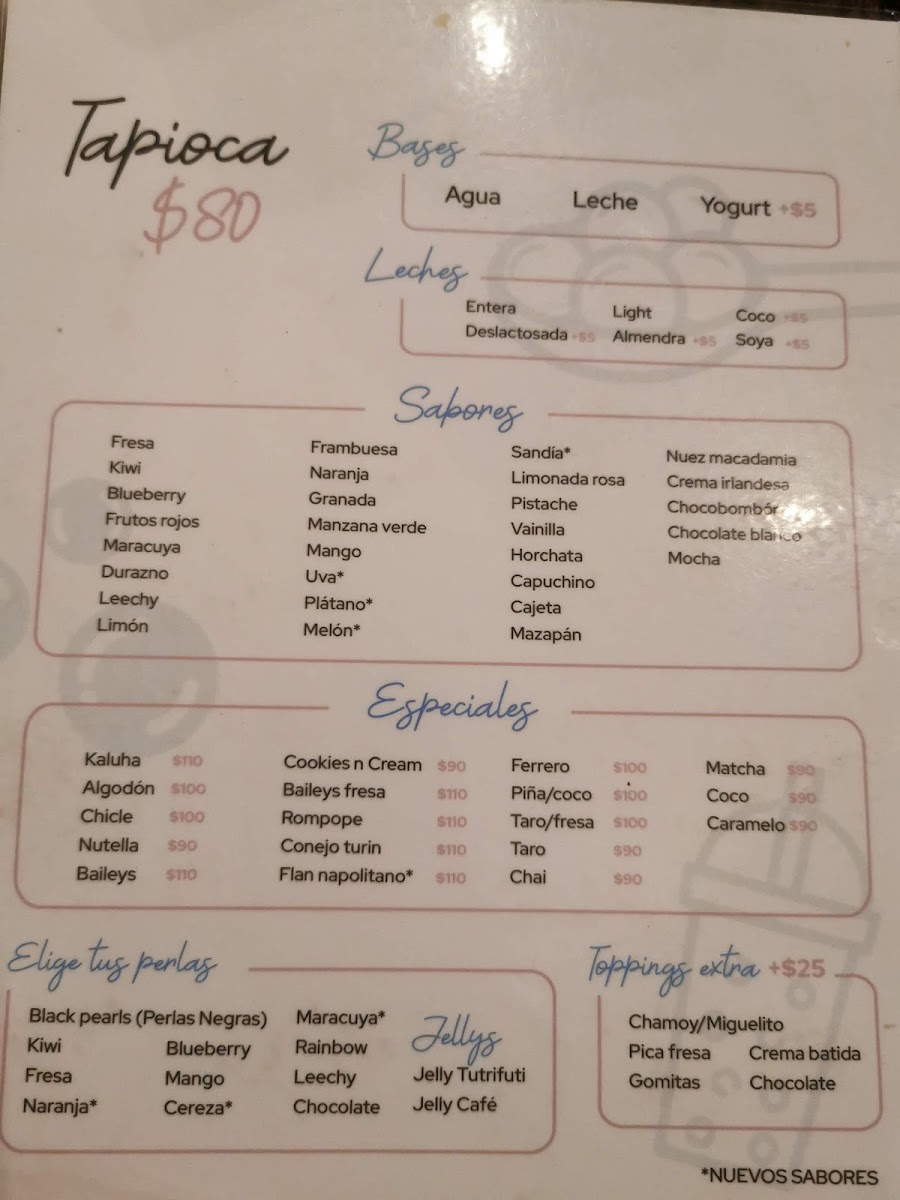 Tapioca
$80
Bases
Agua Leche Yogurt +$5
Leches
Entera Light Coco +$5
Deslactosada +$5 Almendra +$5 Soya +$5
Sabores
Fresa Frambuesa Sandía* Nuez macadamia
Kiwi Naranja Limonada rosa Crema irlandesa
Blueberry Granada Pistache Chocobombór
Frutos rojos Manzana verde Vainilla Chocolate blanco
Maracuya Mango Horchata Mocha
Durazno Uva* Capuchino
Leechy Plátano* Cajeta
Limón Melón* Mazapán
Especiales
Kaluha $110 Cookies n Cream $90 Ferrero $100 Matcha $90
Algodón $100 Baileys fresa $110 Piña/coco $100 Coco $90
Chicle $100 Rompope $110 Taro/fresa $100 Caramelo $90
Nutella $90 Conejo turin $110 Taro $90
Baileys $110 Flan napolitano* $110 Chai $90
Elige tus perlas
Black pearls (Perlas Negras) Maracuya*
Kiwi Blueberry Rainbow
Fresa Mango Leechy
Naranja* Cereza* Chocolate
Jellys
Jelly Tutrifuti
Jelly Café
Toppings extra +$25
Chamoy/Miguelito
Pica fresa Crema batida
Gomitas Chocolate
*NUEVOS SABORES